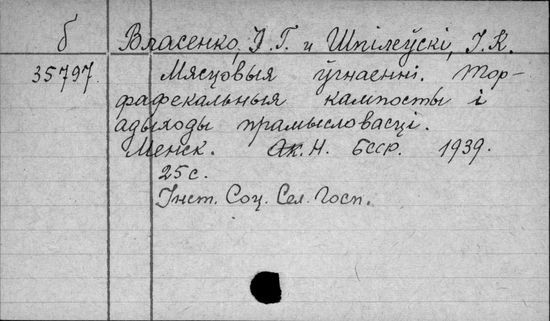 б Власенко, І. Г. и Шпілеўскі, І. К.
35797. Мясцовыя ўгнаенні. Тор-
фафекальныя кампосты і
адыходы прамысловасці.
Менск. Ак. Н. БССР. 1939.
25 с.
Інст. Соц. Сел. Госп.